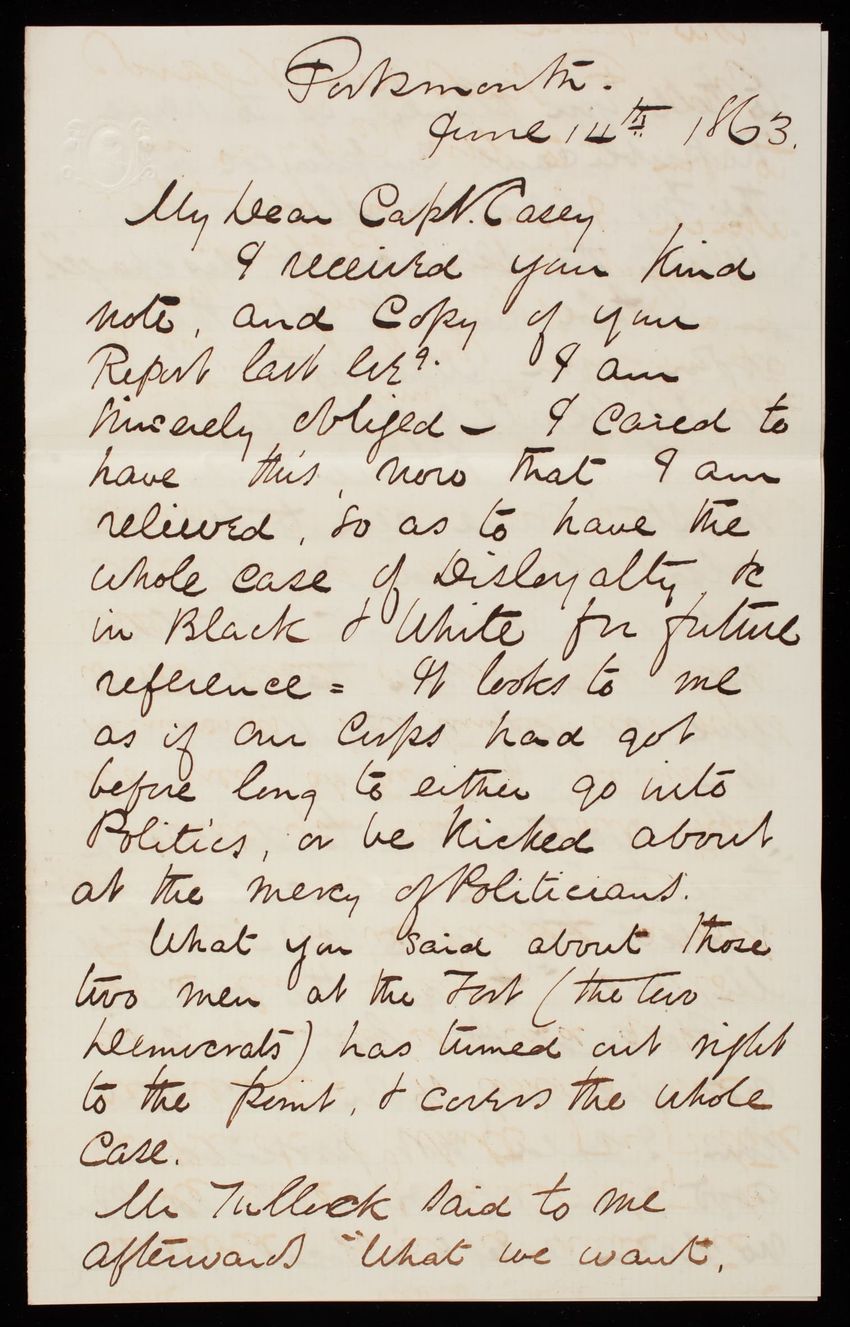 Portsmouth.
June 14th 1863.
My Dear Capt. Casey
I received your kind
note, and Copy of your
Report last evg. I am
sincerely obliged - I cared to
have this, now that I am
relieved, so as to have the
whole case of Disloyalty &c
in Black & White for future
reference = It looks to me
as if our Corps had got
before long to either go into
Politics, or be kicked about
at the mercy of Politicians.
What you said about those
two men at the Fort (the two
Democrats) has turned out right
to the point, & covers the whole
Case.
Mr Tullock said to me
afterwards "What we want,